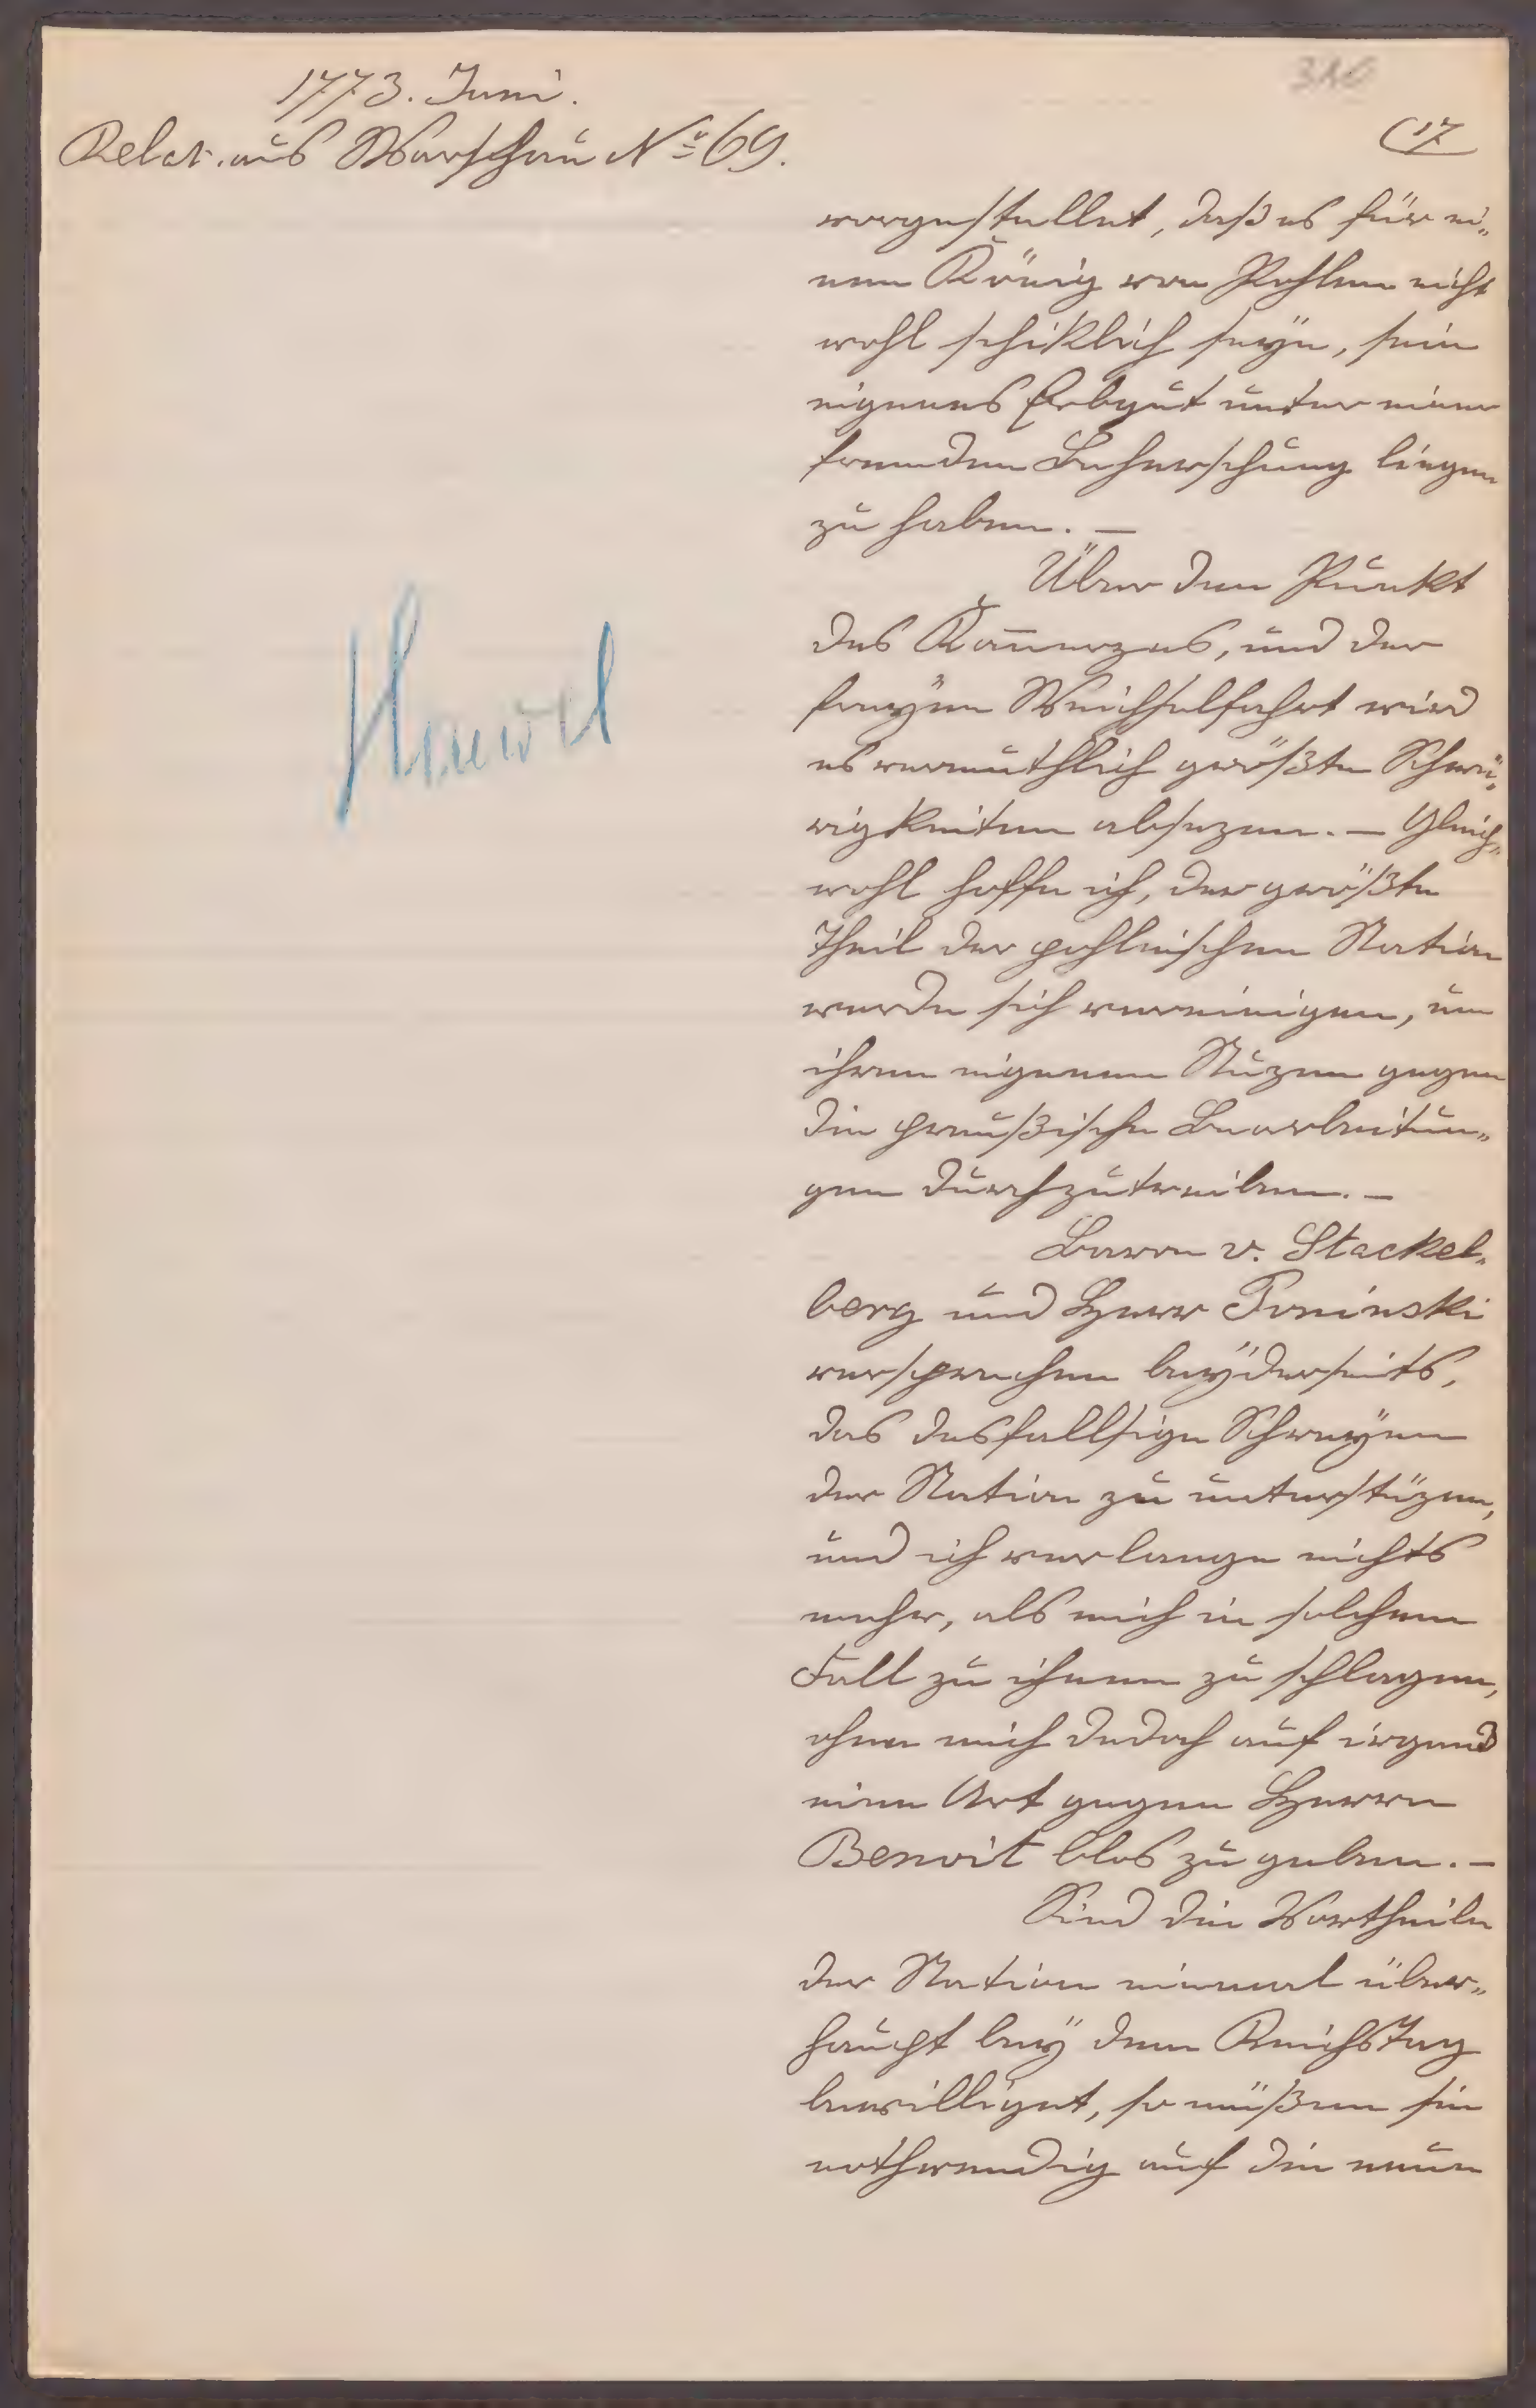 310
1773. Juni.
Relat. aus Warschau No 69.
17
vorgestellet, daß es für ei„
nen König von Pohlen nicht
wohl schiklich seyn, sein
eigenes Erbgut unter einer
fremden Beherschung liegen
zu haben. —
Über den Punkt
des Kom̄erzes, und der
freyen Weichselfahrt wird
es vermuthlich größte Schwü„
rigkeiten absezen. — Gleich„
wohl hoffe ich, der größte
Theil der pohlnischen Nation
werde sich vereinigen, um
ihren eigenen Nuzen gegen
die preußische Bearbeitun„
gen durchzutreiben. —
Baron v. Stackel„
berg und Herr Poninski
versprechen beyderseits,
das desfallsige Schreyen
der Nation zu unterstüzen,
und ich verlange nichts
mehr, als mich in solchem
Fall zu ihnen zu schlagen,
ohne mich dedoch auf irgend
eine Art gegen Herrn
Benoit blos zu geben. —
Sind die Vortheile
der Nation einmal über„
haupt bey dem Reichstag
bewilliget, so müßen sie
nothwendig auf die neue